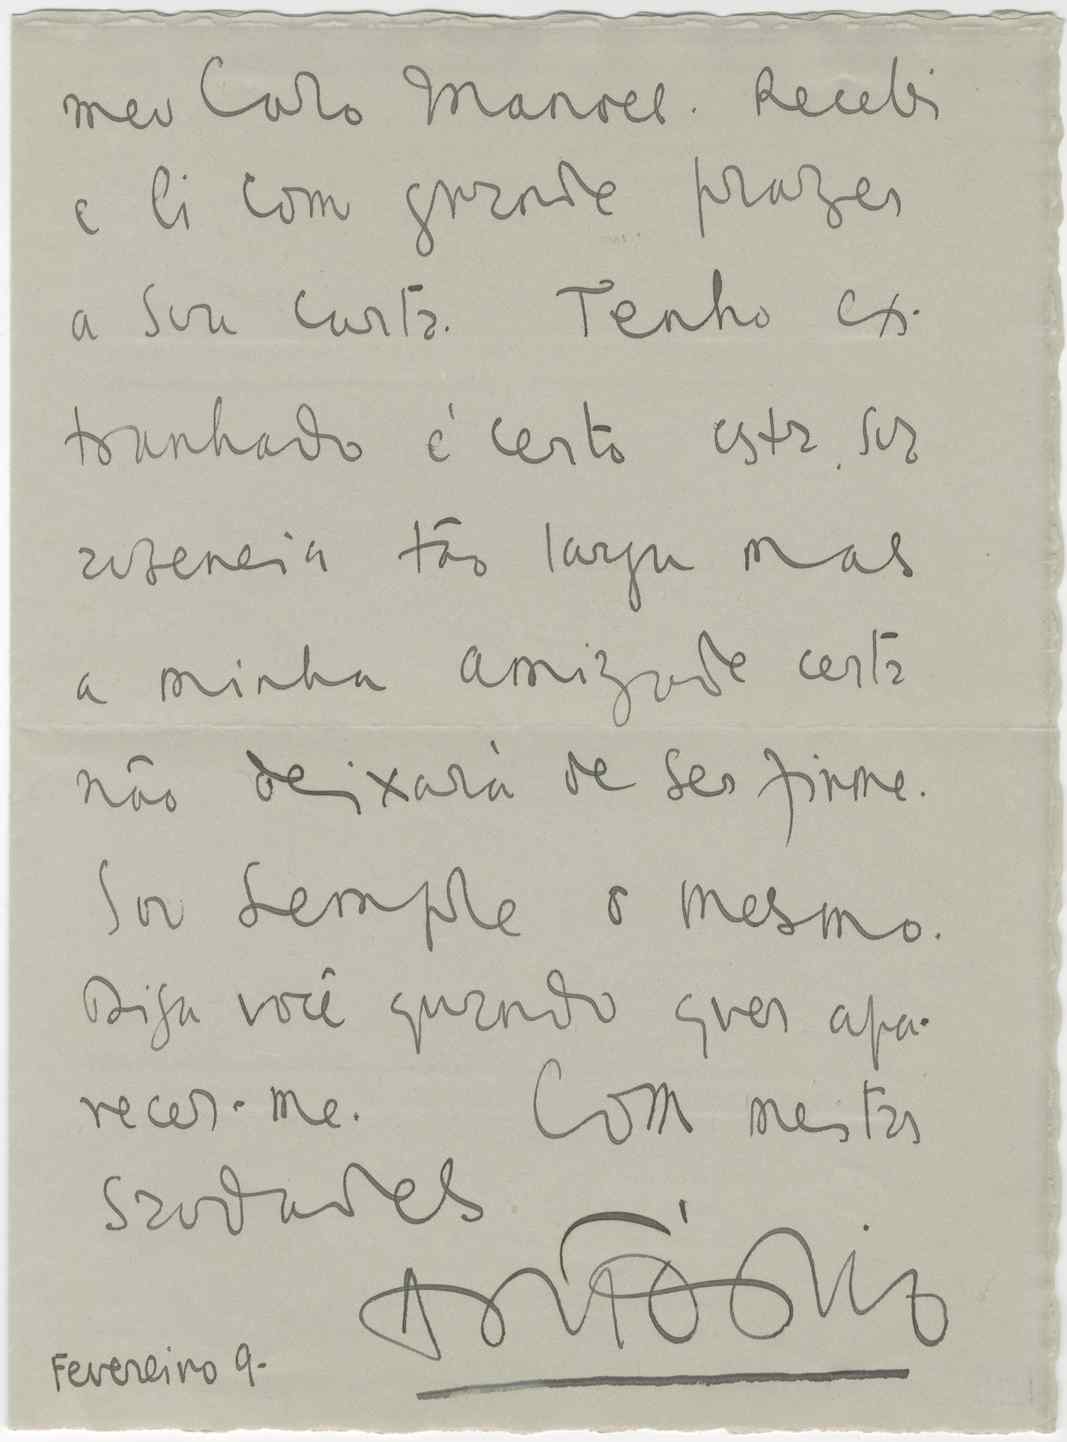 meu Caro Manoel. Recebi
e li com grande prazer
a sua carta. Tenho ex-
tranhado é certo esta sua
ausencia tão larga mas
a minha amizade certa
não deixará de ser firme.
Sou sempre o mesmo.
Diga você quando quer apa-
recer-me. Com mestas
saudades
António
Fevereiro 9-